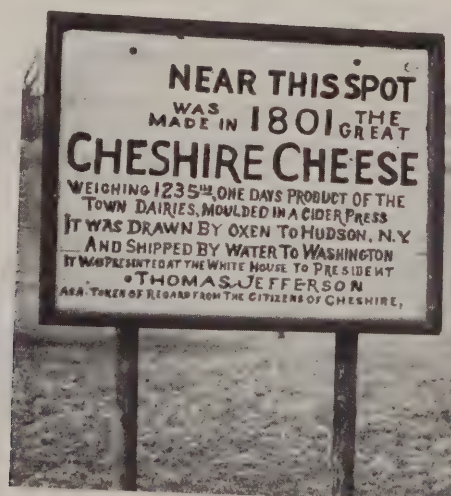 NEAR THIS SPOT
WAS
MADE IN 1801 THE
GREAT
CHESHIRE CHEESE
WEIGHING 1235 LBS, ONE DAYS PRODUCT OF THE
TOWN DAIRIES, MOULDED IN A CIDER PRESS
IT WAS DRAWN BY OXEN TO HUDSON, N.Y
AND SHIPPED BY WATER TO WASHINGTON
IT WAS PRESENTED AT THE WHITE HOUSE TO PRESIDENT
THOMAS JEFFERSON
AS A TOKEN OF REGARD FROM THE CITIZENS OF CHESHIRE,